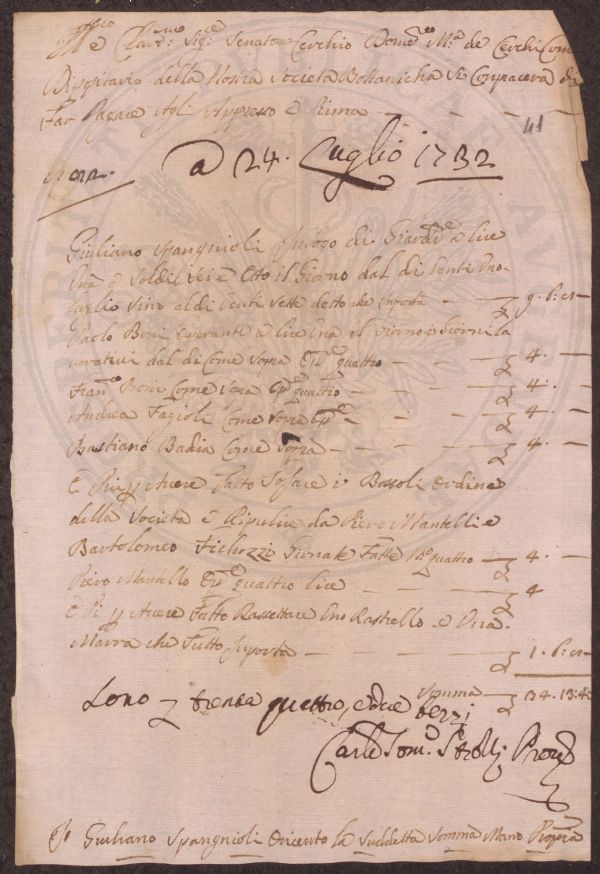 e Sig.e Senato Cerchio Dom.co M.a de Cerchi Com
Dispitario della Nostra Societa Bottanicha Si Compiacerà di
Far Pagare Apresso e Prima
41
a 24. Luglio 1732
Giuliano Spangnioli di Giardi a lire
Una e Soldi Sei e Otto il Giorno dal di Venti Uno
Luglio Sino al di Venti Sette detto che inporta — 9. 6:
Paolo Boni Operante a lire Una il Giorno e Giorni la
vorativi dal di Come Sopra quattro — 4. —
Fran.co Boni Come Sopra quattro — 4. —
Andrea Fagioli Come Sopra — 4. —
Bastiano Badia Come Sopra — 4. —
E Più Avere Fatto i Bossoli Ordine
della Societa e Ripulire da Piero Mantelli e
Bartolomeo Fichozzi Giornate Fatte N.o quattro — 4. —
Piero Mantello quattro lire — 4
E Più Avere Fatto Rassettare Uno Rastrello e Una
Marra che Tutto Inporta — 1. 6:
Somma — 34. 13:4
Sono trenta quattro, e
Carlo Tom.o
Io Giuliano Spangnioli Ò riceuto la Suddetta Somma Mano Propria